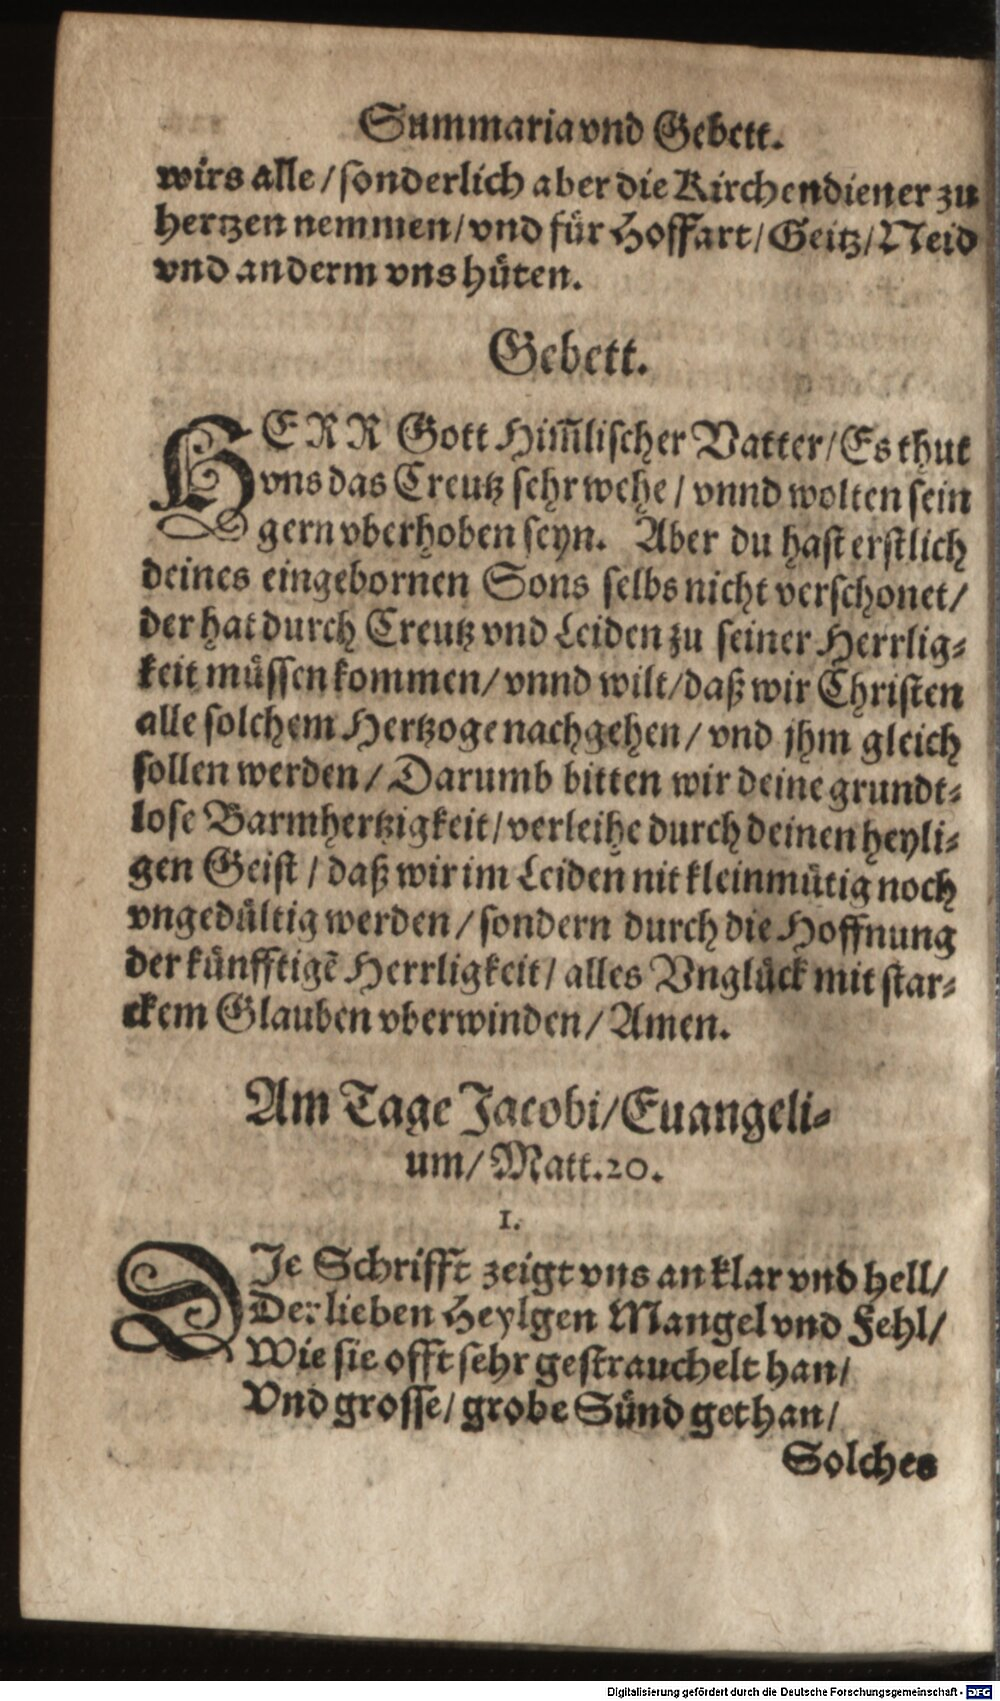 Summaria vnd Gebett.
wirs alle / sonderlich aber die Kirchendiener zu
hertzen nemmen / vnd für Hoffart / Geitz / Neid
vnd anderm vns hüten.
Gebett.
HERR Gott Him̃lischer Vatter / Es thut
vns das Creutz sehr wehe / vnnd wolten sein
gern vberhoben seyn. Aber du hast erstlich
deines eingebornen Sons selbs nicht verschonet /
der hat durch Creutz vnd Leiden zu seiner Herrlig-
keit müssen kommen / vnnd wilt / daß wir Christen
alle solchem Hertzoge nachgehen / vnd jhm gleich
sollen werden / Darumb bitten wir deine grundt-
lose Barmhertzigkeit / verleihe durch deinen heyli-
gen Geist / daß wir im Leiden nit kleinmütig noch
vngedültig werden / sondern durch die Hoffnung
der künfftigẽ Herrligkeit / alles Vnglück mit star-
ckem Glauben vberwinden / Amen.
Am Tage Jacobi / Euangeli-
um / Matt. 20.
I.
DIe Schrifft zeigt vns an klar vnd hell /
Der lieben Heylgen Mangel vnd Fehl /
Wie sie offt sehr gestrauchelt han /
Vnd grosse / grobe Sünd gethan /
Solches
Digitalisierung gefördert durch die Deutsche Forschungsgemeinschaft - DFG